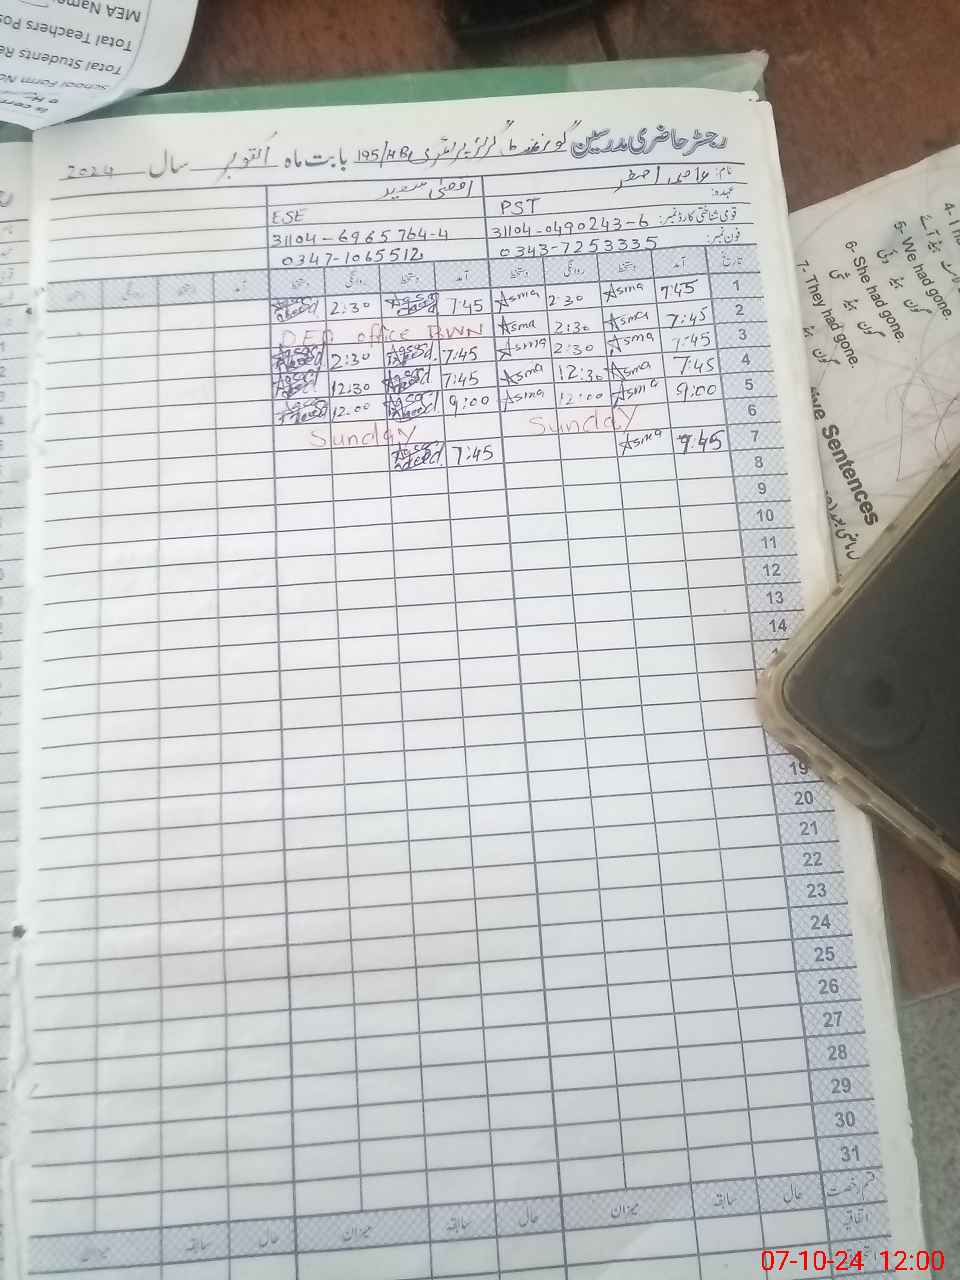 رجسٹر حاضری مدرسین گورنمنٹ گرلز پرائمری 195/HB بابت ماہ اکتوبر سال 2024
نام:
اقصیٰ سعید
عہدہ: PST ESE
قومی شناختی کارڈ نمبر: 31104-0490243-6 31104-6965764-4
فون نمبر: 0343-7253335 0347-1065512
تاریخ آمد دستخط روانگی دستخط آمد دستخط روانگی دستخط آمد دستخط روانگی دستخط
1 7:45 Asma 2:30 Asma 7:45 2:30
2 7:45 Asma 2:30 Asma DEO office BWN
3 7:45 Asma 2:30 Asma 7:45 2:30
4 7:45 Asma 12:30 Asma 7:45 12:30
5 9:00 Asma 12:00 Asma 9:00 12:00
6 Sunday Sunday
7 7:45 Asma 7:45
8
9
10
11
12
13
14
19
20
21
22
23
24
25
26
27
28
29
30
31
قسم رخصت حال سابقہ میزان حال سابقہ میزان حال سابقہ میزان
اتفاقیہ
MEA Name
Total Teachers Pos
Total Students Re
School Form No
5- We had gone.
6- She had gone.
7- They had gone.
ive Sentences
07-10-24 12:00